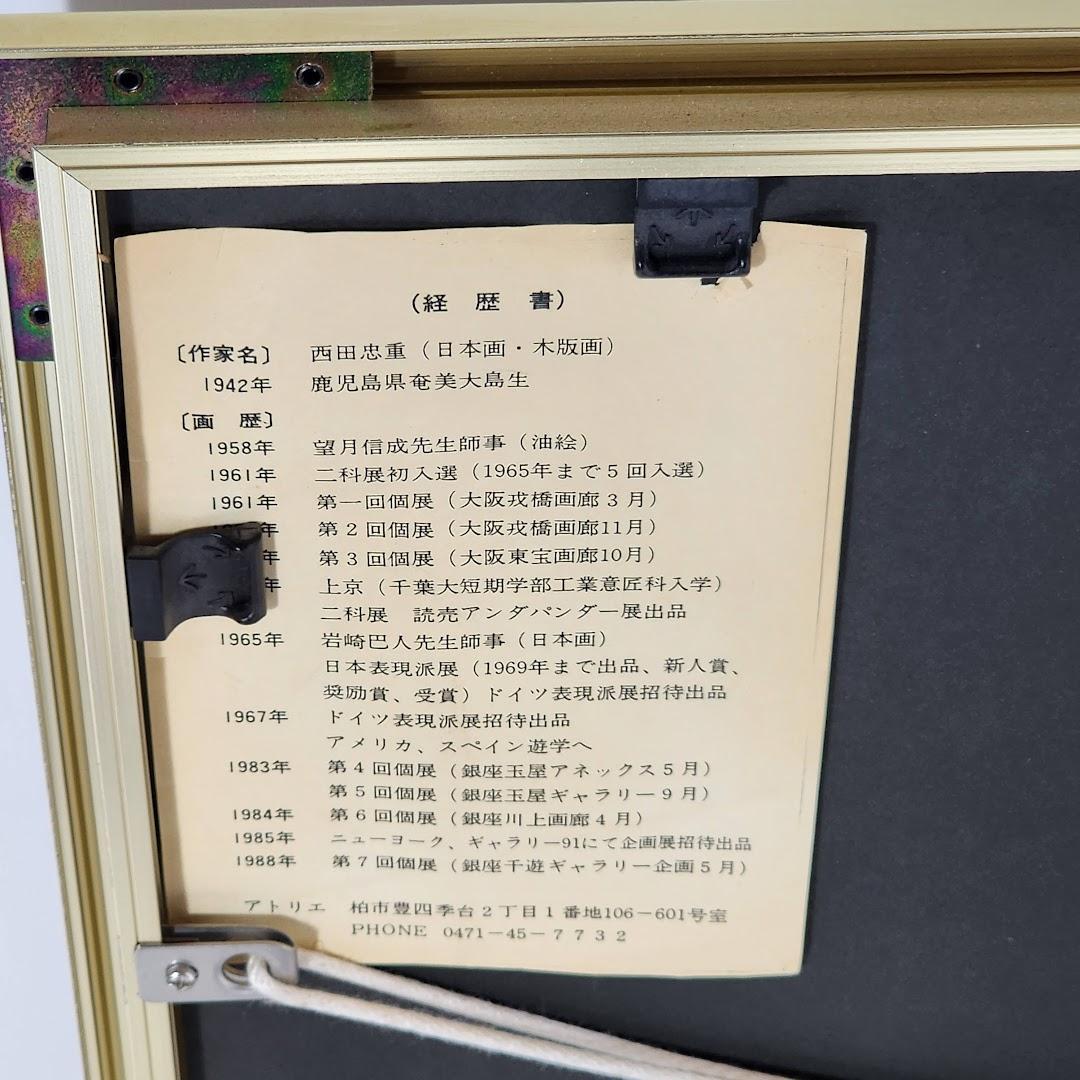 (経 歴 書)
〔作家名〕 西田忠重(日本画・木版画)
1942年 鹿児島県奄美大島生
〔画 歴〕
1958年 望月信成先生師事(油絵)
1961年 二科展初入選(1965年まで5回入選)
1961年 第一回個展(大阪戎橋画廊3月)
年 第2回個展(大阪戎橋画廊11月)
年 第3回個展(大阪東宝画廊10月)
年 上京(千葉大短期学部工業意匠科入学)
二科展 読売アンダパンダー展出品
1965年 岩崎巴人先生師事(日本画)
日本表現派展(1969年まで出品、新人賞、
奨励賞、受賞)ドイツ表現派展招待出品
1967年 ドイツ表現派展招待出品
アメリカ、スペイン遊学へ
1983年 第4回個展(銀座玉屋アネックス5月)
第5回個展(銀座玉屋ギャラリー9月)
1984年 第6回個展(銀座川上画廊4月)
1985年 ニューヨーク、ギャラリー91にて企画展招待出品
1988年 第7回個展(銀座千遊ギャラリー企画5月)
アトリエ 柏市豊四季台2丁目1番地106-601号室
PHONE 0471-45-7732